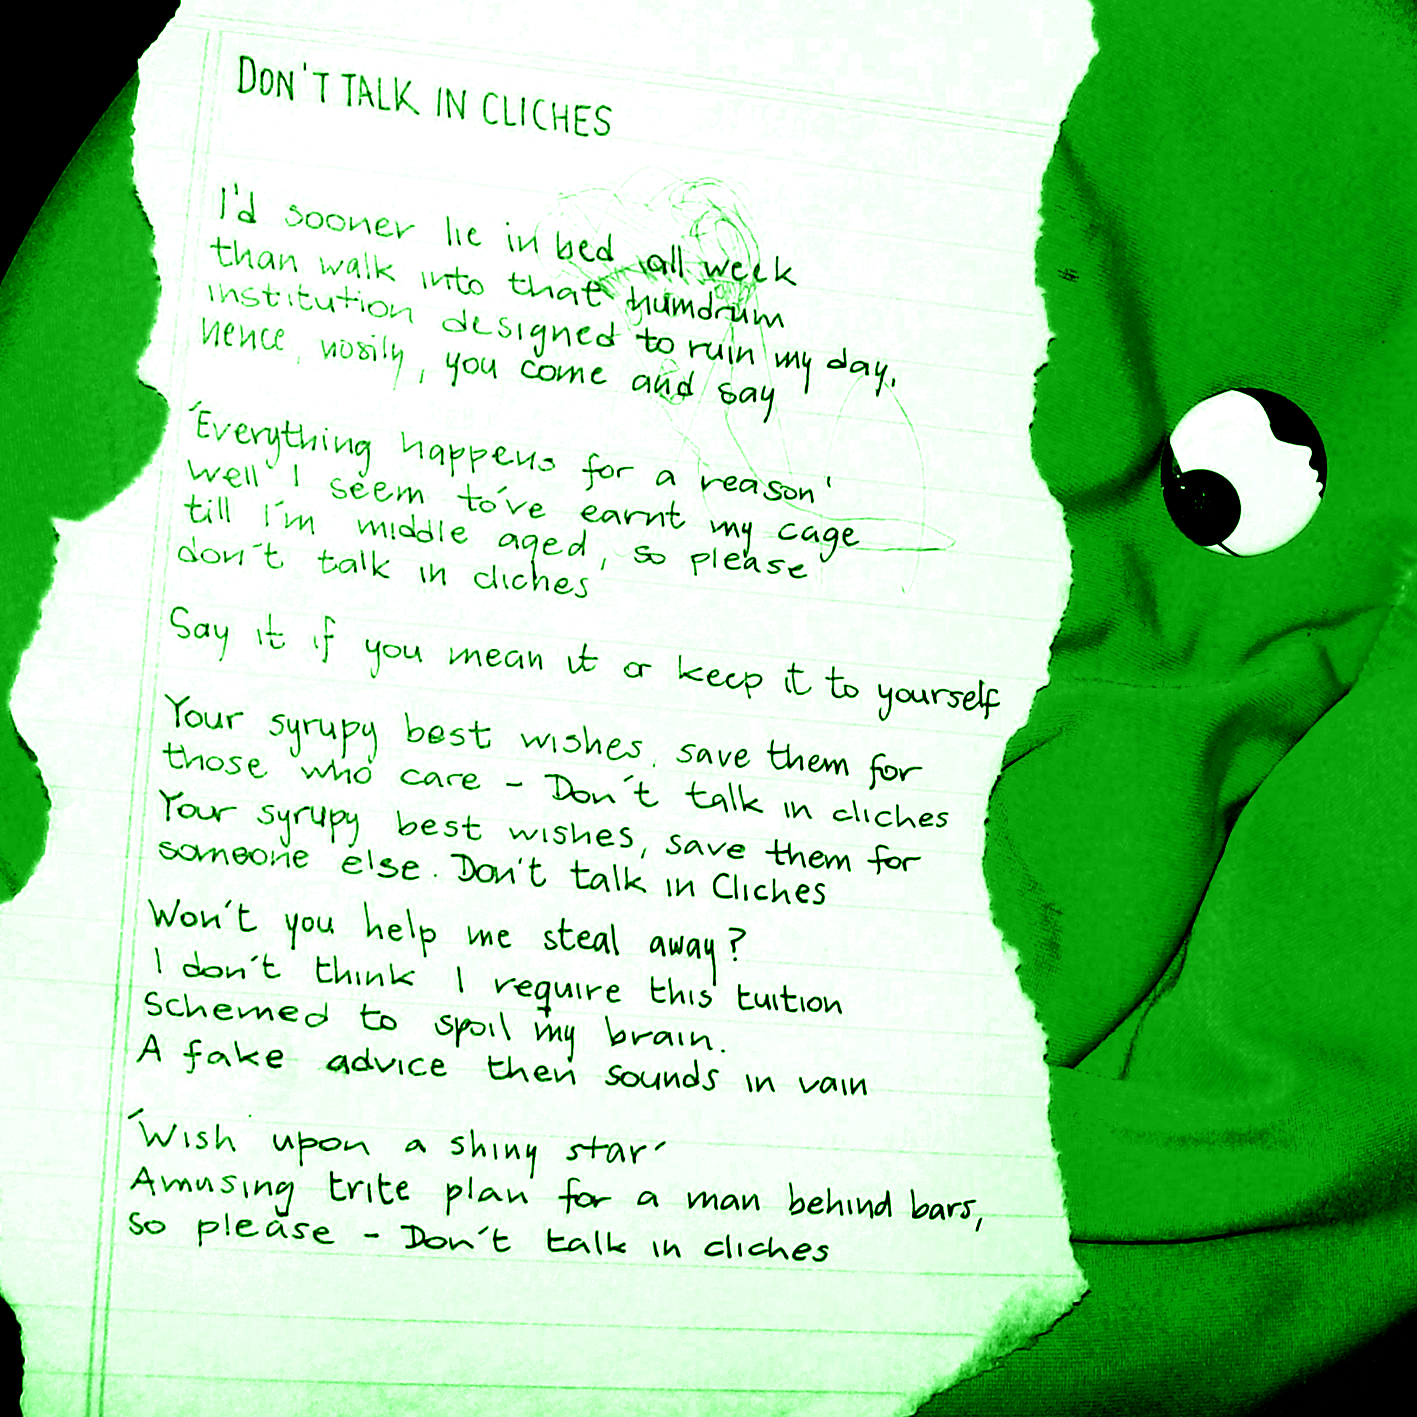 DON'T TALK IN CLICHES
I'd sooner lie in bed all week
than walk into that humdrum
institution designed to ruin my day,
hence, nosily, you come and say
'Everything happens for a reason'
well I seem to've earnt my cage
till I'm middle aged, so please
don't talk in cliches
Say it if you mean it or keep it to yourself
Your syrupy best wishes, save them for
those who care - Don't talk in cliches
Your syrupy best wishes, save them for
someone else. Don't talk in Cliches
Won't you help me steal away?
I don't think I require this tuition
Schemed to spoil my brain.
A fake advice then sounds in vain
'Wish upon a shiny star'
Amusing trite plan for a man behind bars,
so please - Don't talk in cliches